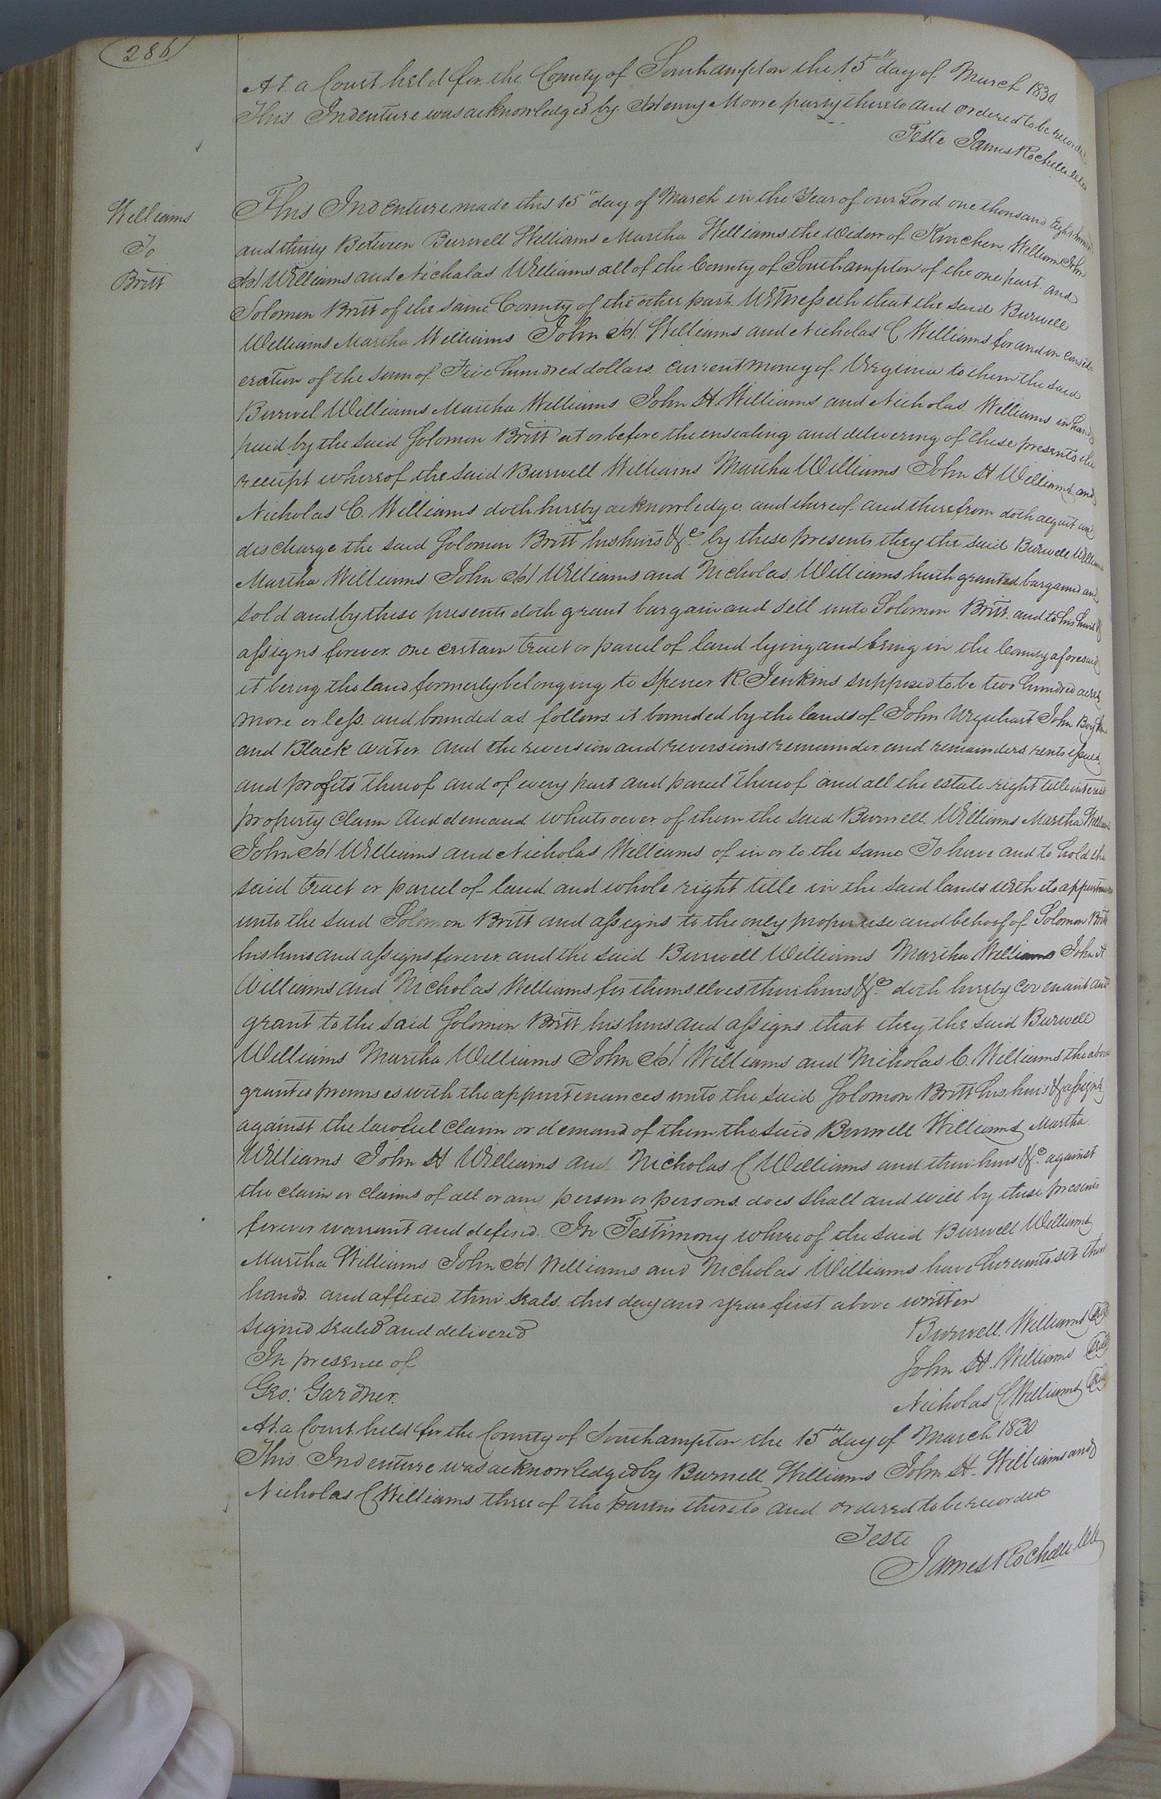 286
At a Court held for the County of Southampton the 15th day of March 1830
This Indenture was acknowledged by Henry Moore party thereto and ordered to be recorded
Teste James Rochelle
Williams
To
Britt
This Indenture made this 15th day of March in the Year of our Lord one thousand Eight hundred
and thirty Between Burwell Williams Martha Williams the Widow of Kinchen Williams John
H Williams and Nicholas Williams all of the County of Southampton of the one part and
Solomon Britt of the same County of the other part. Witnesseth that the said Burwell
Williams Martha Williams John H. Williams and Nicholas C Williams for and in consid
eration of the sum of hundred dollars current money of Virginia to them the said
Burwel Williams Martha Williams John H. Williams and Nicholas Williams in hand
paid by the said Solomon Britt at or before the ensealing and delivering of these presents the
receipt whereof the said Burwell Williams Martha Williams John H Williams and
Nicholas C. Williams doth hereby acknowledge and thereof and therefrom doth acquit and
discharge the said Solomon Britt his heirs &c. by these presents they the said Burwell Williams
Martha Williams John H Williams and Nicholas Williams hath granted bargained and
sold and by these presents doth grant bargain and sell unto Solomon Britt and to his heirs &
assigns forever one certain tract or parcel of land lying and being in the County aforesaid
it being the land formerly belonging to Spencer R. Jenkins supposed to be two hundred acres
more or less and bounded as follows it bounded by the lands of John Urquhart John
and Black water and the reversion and reversions remainder and remainders rents issues
and profits thereof and of every part and parcel thereof and all the estate right title interest
property claim and demand whatsoever of them the said Burwell Williams Martha Williams
John H Williams and Nicholas Williams of in or to the same To have and to hold the
said tract or parcel of land and whole right title in the said lands with its appurtenances
unto the said Solomon Britt and assigns to the only proper use and behoof of Solomon Britt
his heirs and assigns forever and the said Burwell Williams Martha Williams John H
Williams and Nicholas Williams for themselves their heirs &c. doth hereby covenant and
grant to the said Solomon Britt his heirs and assigns that they the said Burwell
Williams Martha Williams John H Williams and Nicholas C. Williams the above
granted premises with the appurtenances unto the said Solomon Britt his heirs & assigns
against the lawful claim or demand of them the said Burwell Williams Martha
Williams John H Williams and Nicholas C Williams and their heirs &c. against
the claim or claims of all or any person or persons does shall and will by these presents
forever warrant and defend. In Testimony where of the said Burwell Williams
Martha Williams John H Williams and Nicholas Williams have hereunto set their
hands and affixed their seals this day and year first above written
Signed sealed and delivered
In presence of
Geo: Gardner.
Burwell Williams
John H. Williams
Nicholas C Williams
At a Court held for the County of Southampton the 15th day of March 1830
This Indenture was acknowledged by Burwell Williams John H. Williams and
Nicholas C Williams three of the parties thereto and ordered to be recorded
Teste
James Rochelle